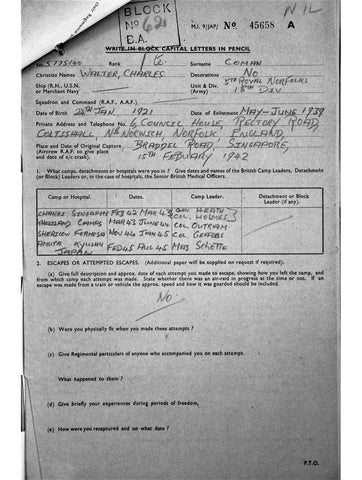 BLOCK
No 621
B.A.
W 1L
M.I. 9/JAP/ No 45658 A
WRITE IN BLOCK CAPITAL LETTERS IN PENCIL
No. 5775140 Rank Pte. Surname COMAN
Christian Names WALTER, CHARLES Decorations NO
Ship (R.N., U.S.N. or Merchant Navy) Unit & Div. (Army) 5TH ROYAL NORFOLKS 18TH DIV
Squadron and Command (R.A.F., A.A.F.)
Date of Birth 24TH JAN 1921 Date of Enlistment MAY-JUNE 1939
Private Address and Telephone No. 6 COUNCIL HOUSE, RECTORY ROAD,
COLTISHALL, NR NORWICH, NORFOLK ENGLAND
Place and Date of Original Capture BRADDEL ROAD, SINGAPORE,
(Aircrew R.A.F. to give place and date of a/c crash). 15TH FEBUARY 1942
1. What camps, detachments or hospitals were you in ? Give dates and names of the British Camp Leaders, Detachment
(or Block) Leaders or, in the case of hospitals, the Senior British Medical Officers.
Camp or Hospital. Dates. Camp Leader. Detachment or Block Leader (if any).
CHANGI SINGAPORE FEB 42 MAR 43 GEN HEATH COL HOLMES
THAILAND CAMPS MAR 43 JUNE 44 COL OUTRAM
FORMOSA NOV 44 JAN 45 COL
KYUSHU JAPAN FEB 45 AUG 45 MAJ
2. ESCAPES OR ATTEMPTED ESCAPES. (Additional paper will be supplied on request if required).
(a) Give full description and approx. date of each attempt you made to escape, showing how you left the camp, and
from which camp each attempt was made. State whether there was an air-raid in progress at the time or not. If an
escape was made from a train or vehicle the approx. speed and how it was guarded should be included.
NO
(b) Were you physically fit when you made these attempts ?
(c) Give Regimental particulars of anyone who accompanied you on each attempt.
What happened to them ?
(d) Give briefly your experiences during periods of freedom,
(e) How were you recaptured and on what date ?
P.T.O.